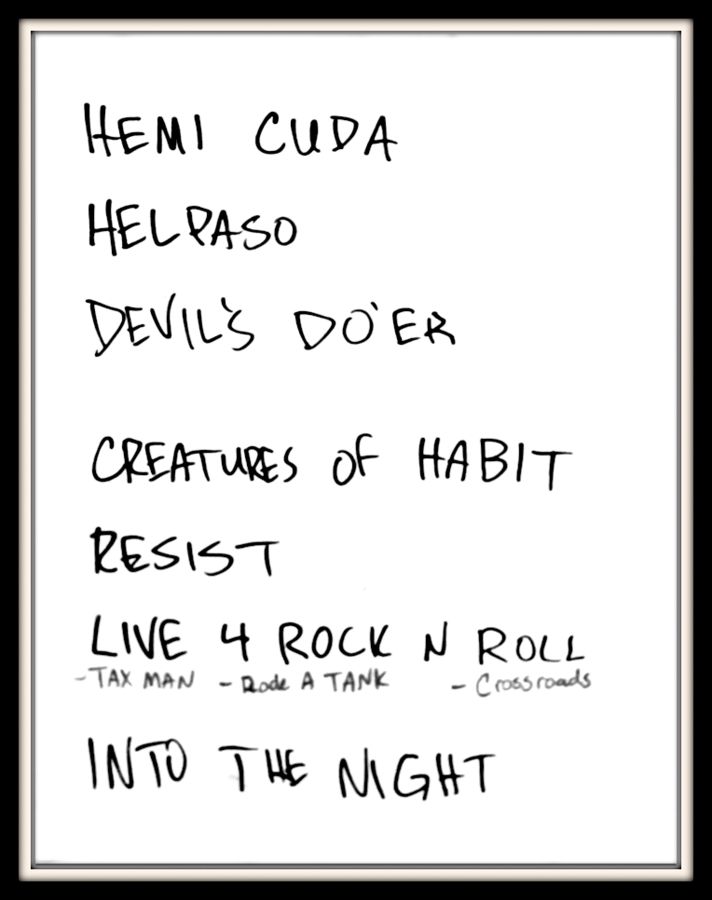 HEMI CUDA
HELPASO
DEVIL'S DO'ER
CREATURES OF HABIT
RESIST
LIVE 4 ROCK N ROLL
- TAX MAN - Rode A TANK - Crossroads
INTO THE NIGHT